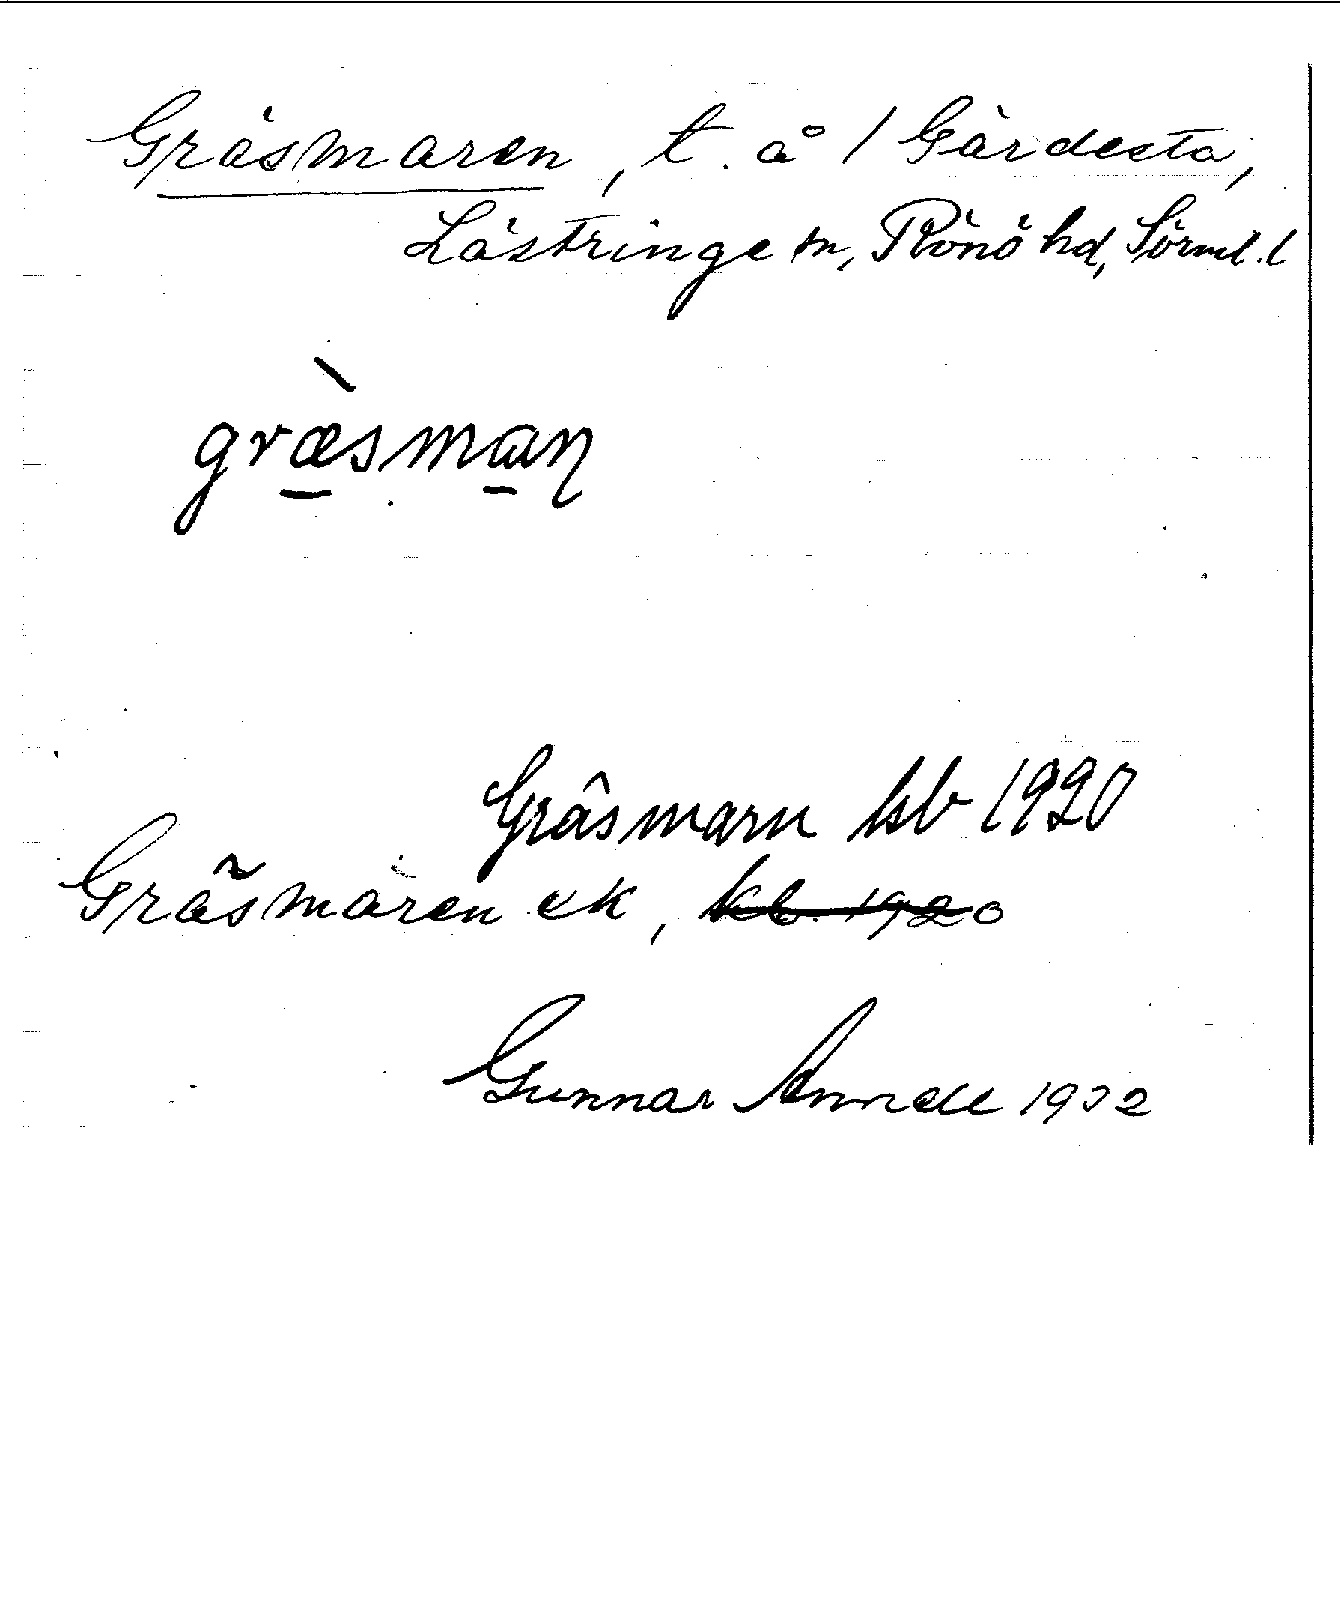 Gräsmaren, t. å / Gärdesta,
Lästringe sn, Rönö hd, Sörml. l
græ̀sman
Gräsmarn kb 1920
Gräsmaren ek, kb. 1920
Gunnar Annell 1932